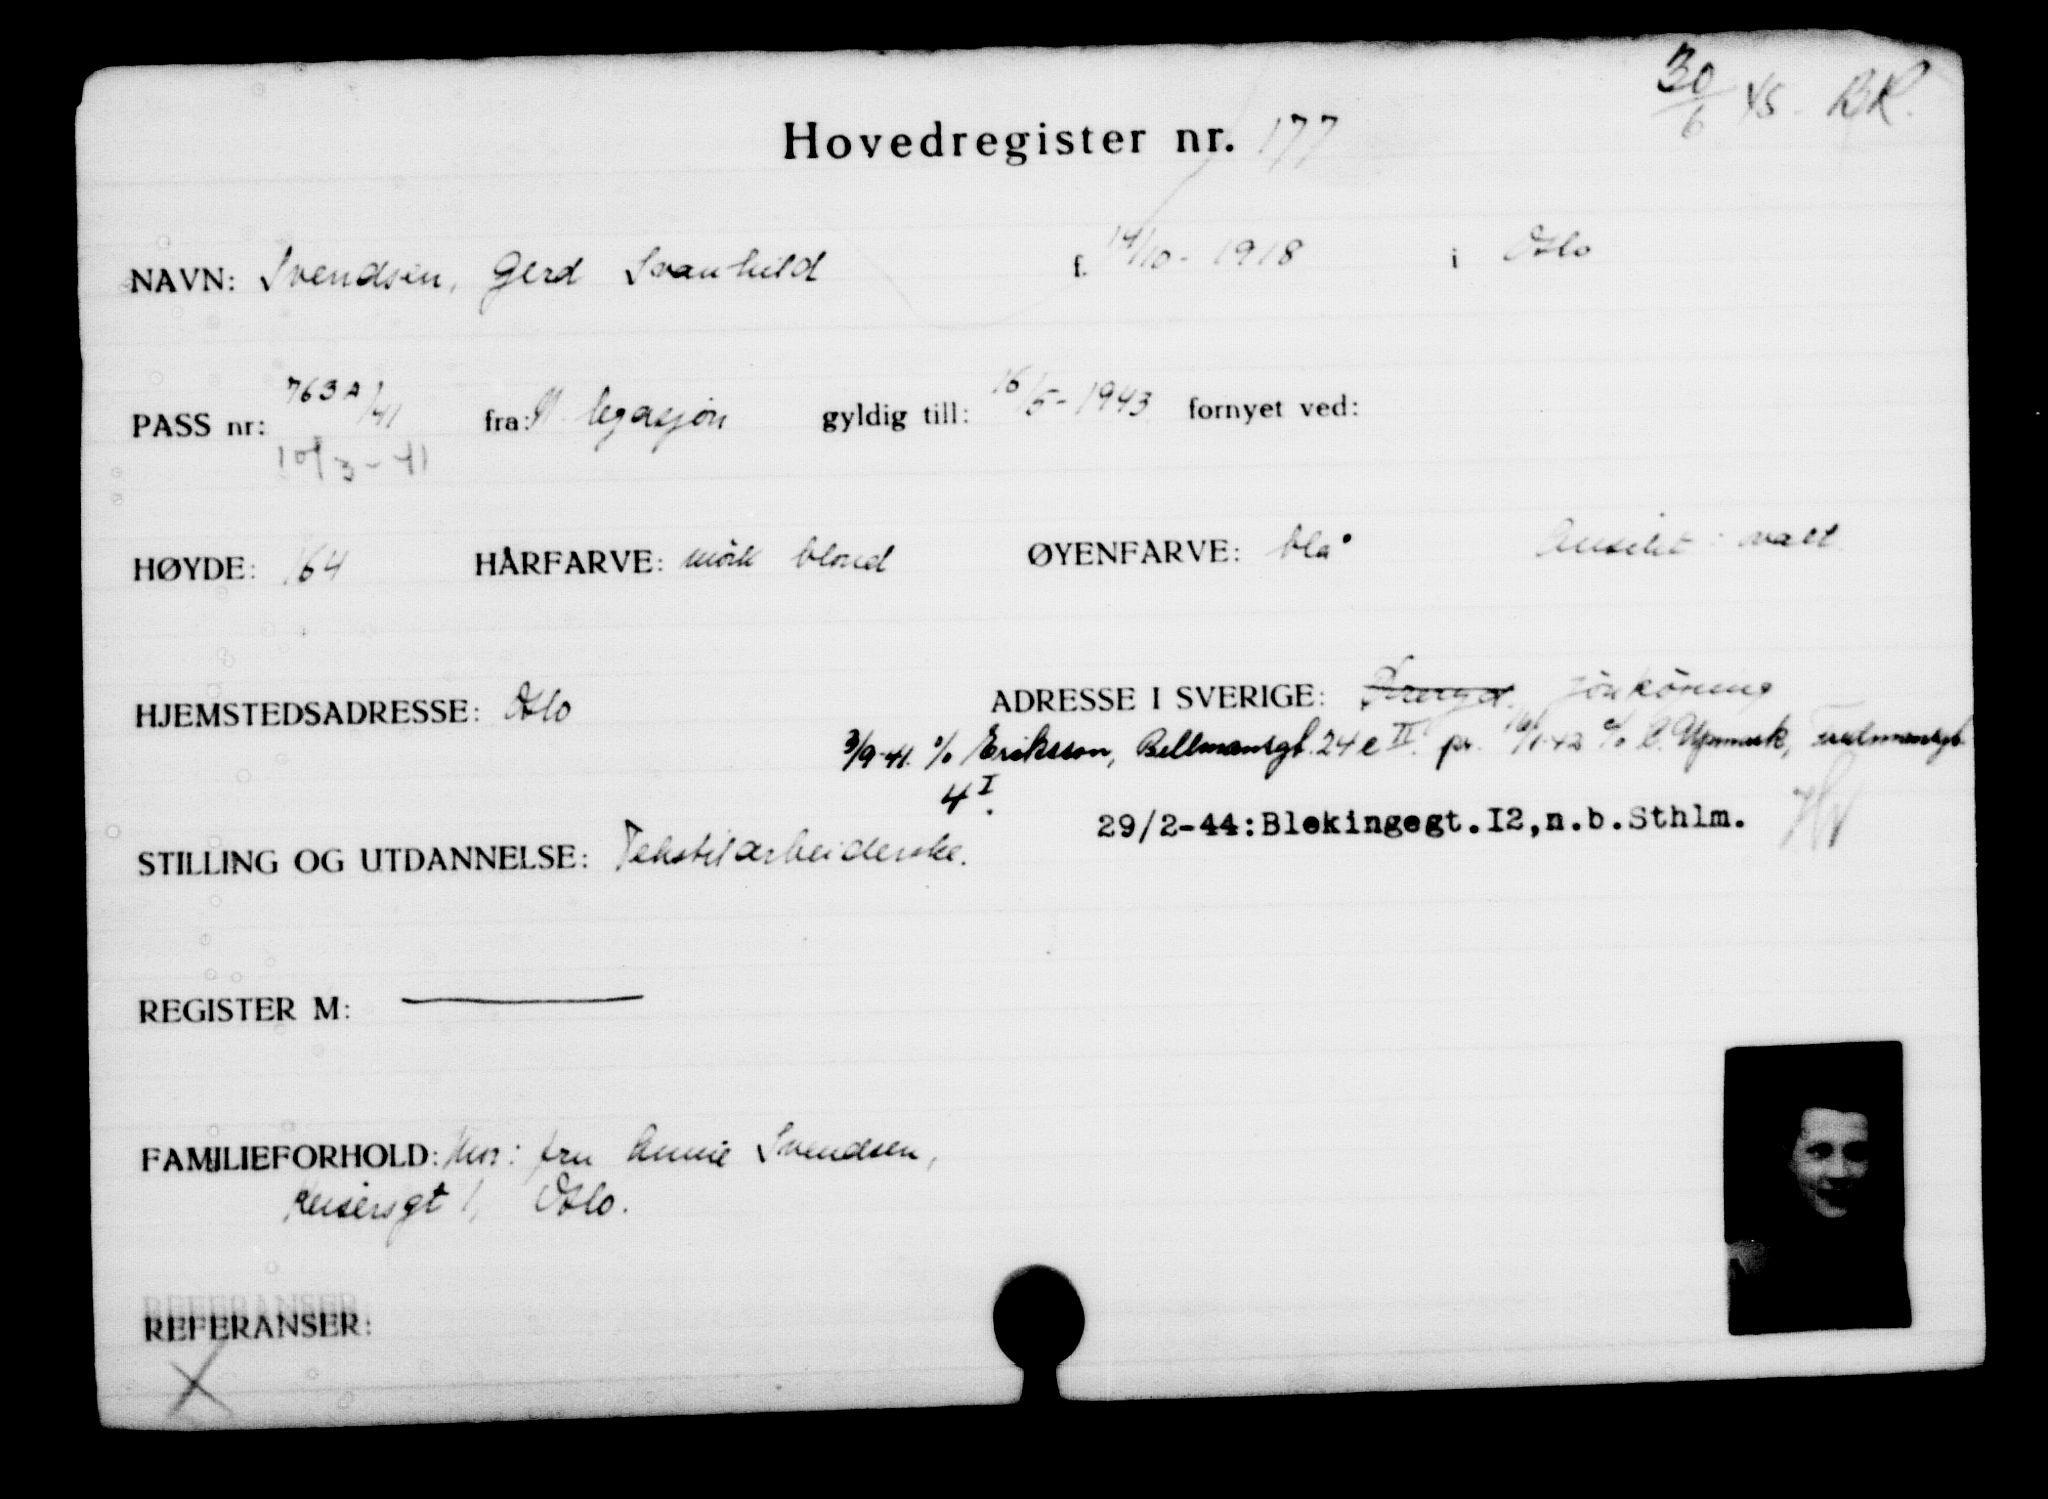 30/6 45 - BK.
Hovedregister nr. 177
NAVN: Svendsen, Gerd Svanhild f. 14/10 - 1918 i Oslo
PASS nr: 763A/41 fra: N. legasjon gyldig till: 16/5 - 1943 fornyet ved:
10/3 - 41
HØYDE: 164 HÅRFARVE: mörk blond ØYENFARVE: blå Ansikt: ovalt
HJEMSTEDSADRESSE: Oslo ADRESSE I SVERIGE: Jönköping
3/9-41. c/o Eriksson, Bellmansgt. 24 c II. pr. 16/1-42 c/o Uppmark,
4 I.
29/2-44:Blekingegt.I2,n.b.Sthlm.
STILLING OG UTDANNELSE: Tekstilarbeiderske.
REGISTER M: —
FAMILIEFORHOLD: Mor: fru Annie Svendsen,
Keisersgt 1, Oslo.
REFERANSER:
X